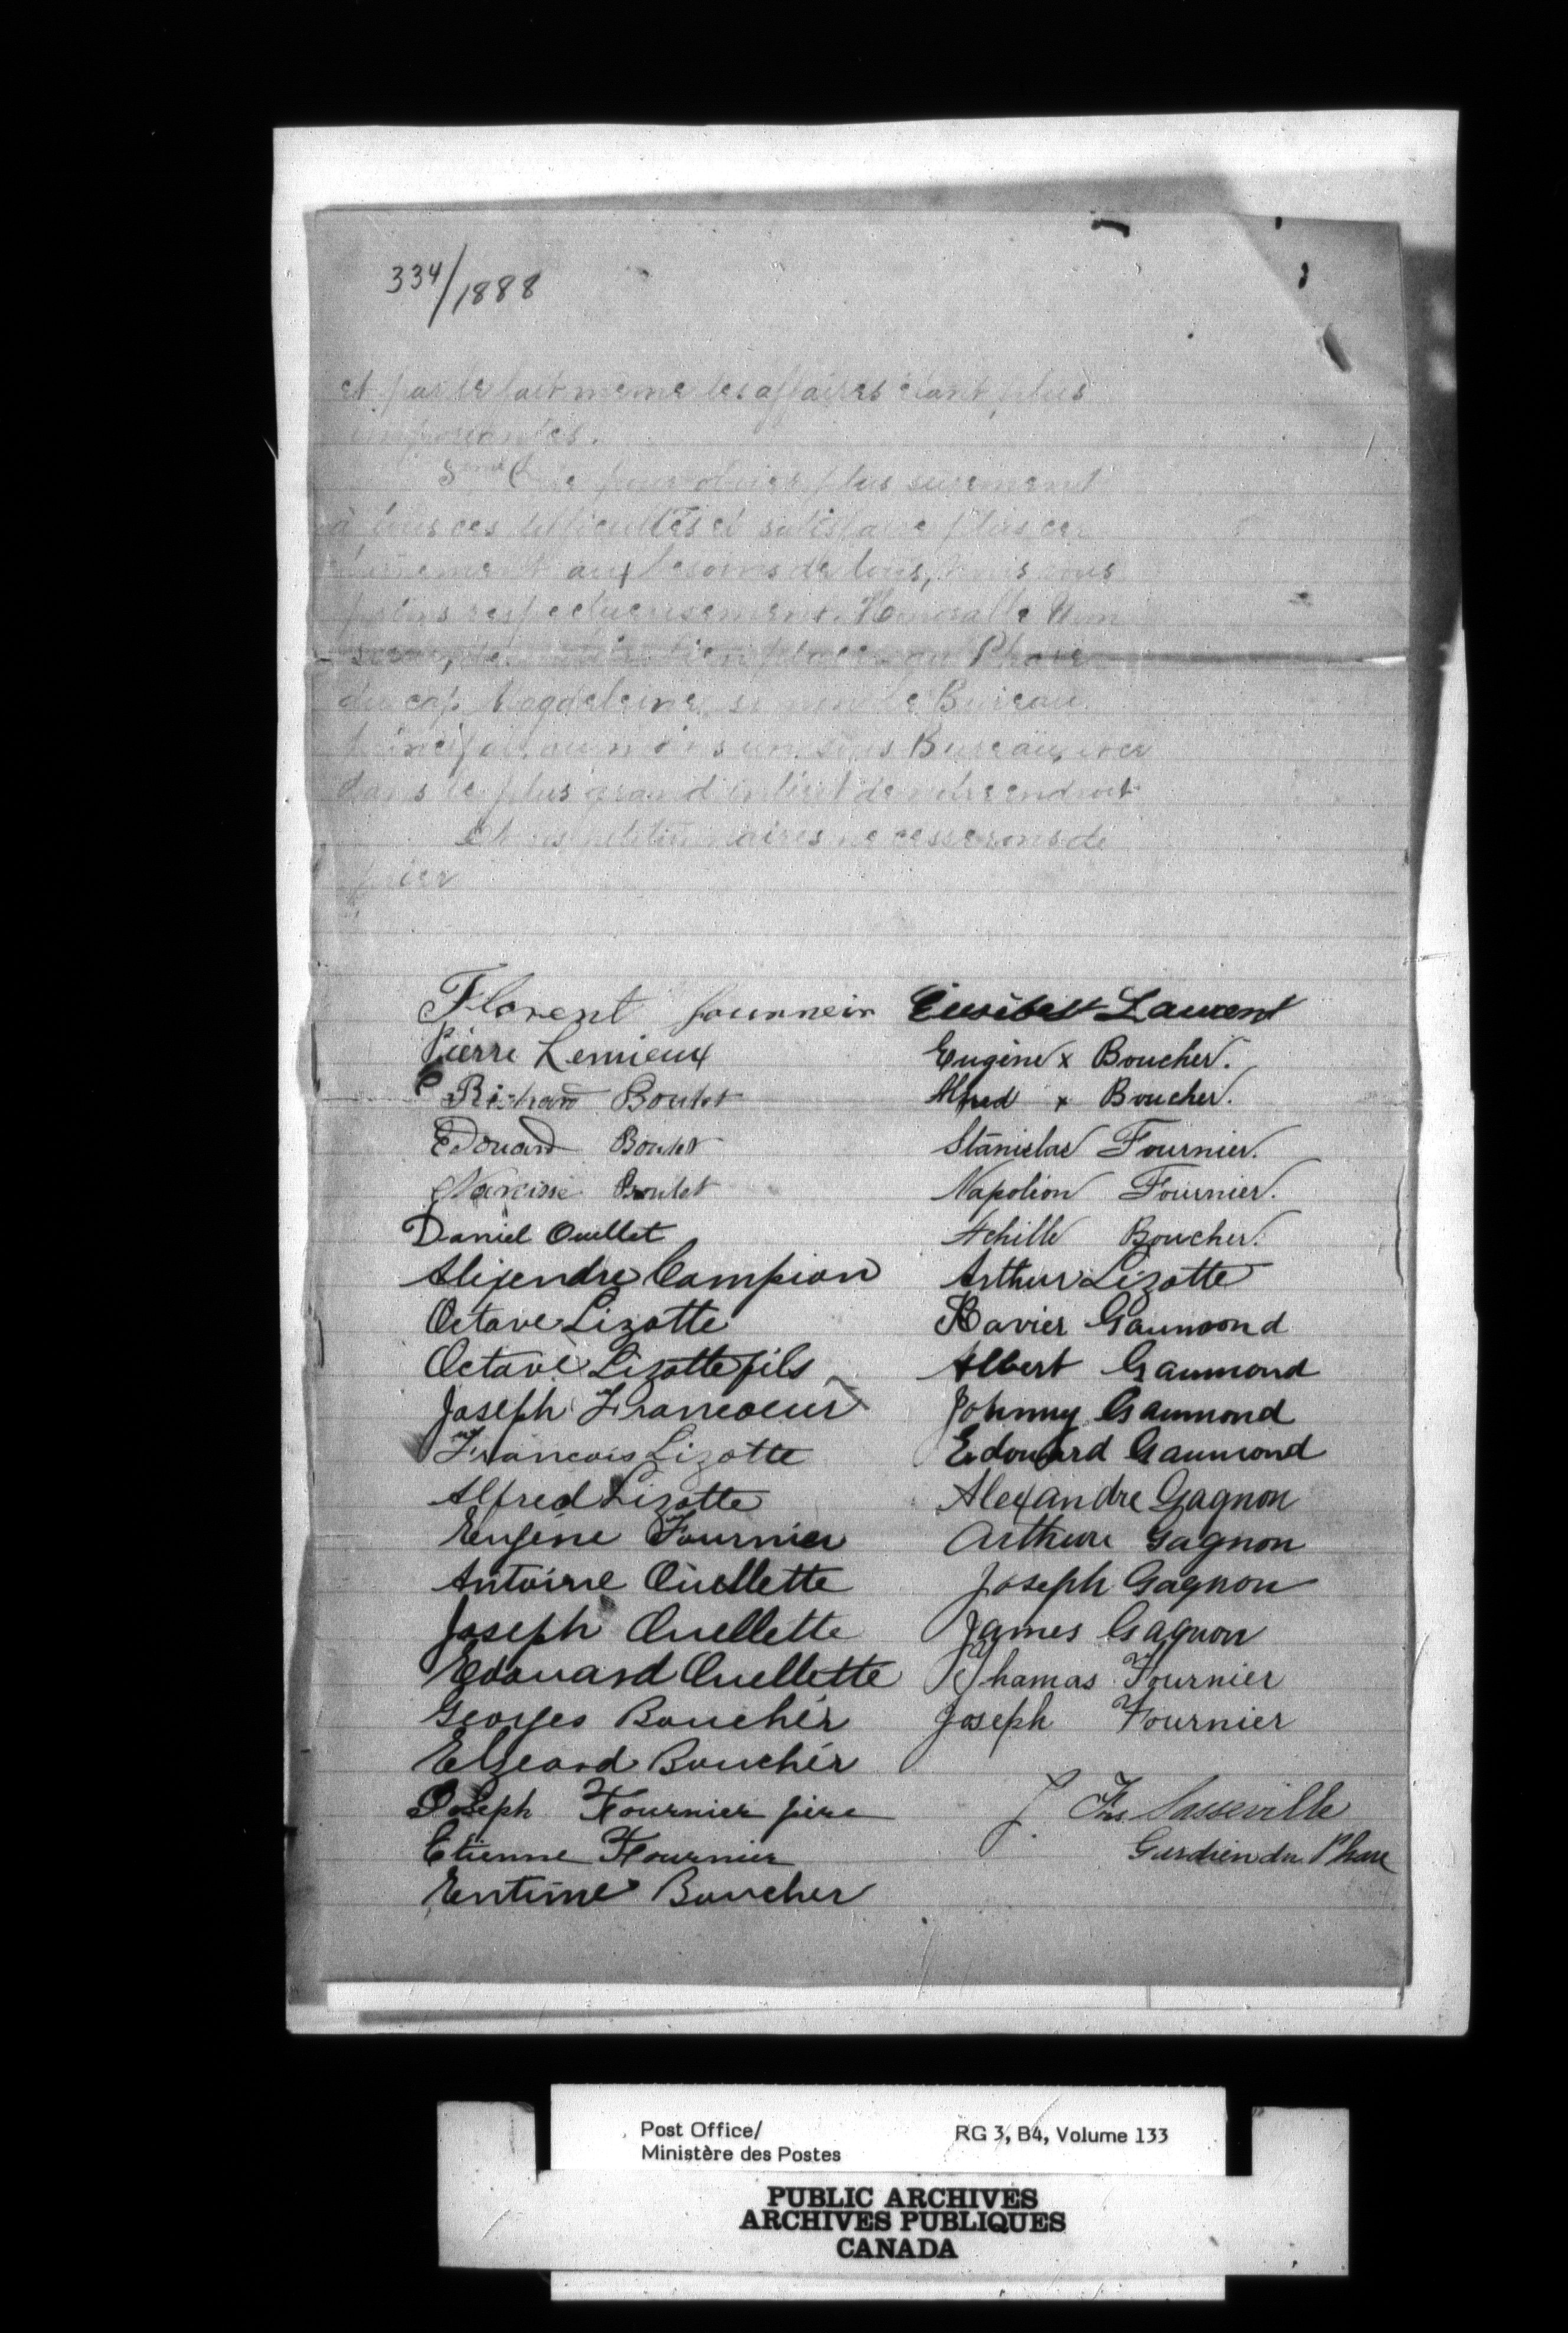 334/1888
et par le fait même les affaires étant plus
importantes.
5eme Que pour obvier plus surement
à tous ces difficultés et satisfaire plus
aux besoins de tous, nous vous
prions respectueusement Honorable
de bien placer au Phare
du cap Magdeleine, si non le Bureau
au moins un sous Bureau,
dans le plus grand intéret de notre endroit
Et vos petitionnaires ne cesserons de
prier
Florent fournneir
Pierre Lemieux
Richard Boulet
Edouard Boulet
Narcisse Boulet
Daniel Ouellet
Alixendre Campion
Octave Lizotte
Octave Lizotte fils
Joseph Francoeur
Francois Lizotte
Alfred Lizotte
Eugéne Fournier
Antoine Ouellette
Joseph Ouellette
Edouard Ouellette
Georges Bouchér
Elzeard Bouchér
Joseph Fournier père
Etienne Fournier
Entime Boucher
Laurent
Eugène x Boucher.
Alfred x Boucher.
Stanislas Fournier.
Napolion Fournier.
Achille Boucher.
Arthur Lizotte
Xavier Gaumond
Albert Gaumond
Johnny Gaumond
Edouard Gaumond
Alexandre Gagnon
Arthur Gagnon
Joseph Gagnon
James Gagnon
Thamas Fournier
Joseph Fournier
J. Frs Sasseville
Gardien du Phare
Post Office/
Ministère des Postes
RG 3, B4, Volume 133
PUBLIC ARCHIVES
ARCHIVES PUBLIQUES
CANADA